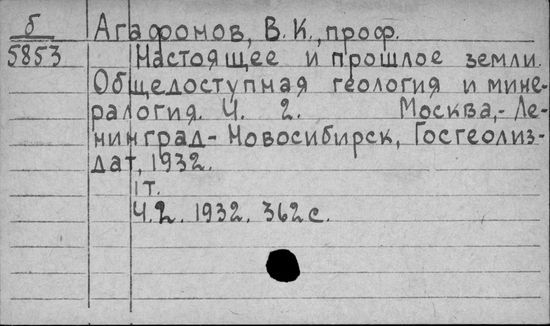 б
5853
Агафонов, В.К., проф.
Настоящее и прошлое земли.
Общедоступная геология и мине-
ралогия. Ч. 2. Москва,- Ле-
нинград- Новосибирск, Госгеолиз-
дат, 1932.
1т.
Ч.2. 1932. 362 с.